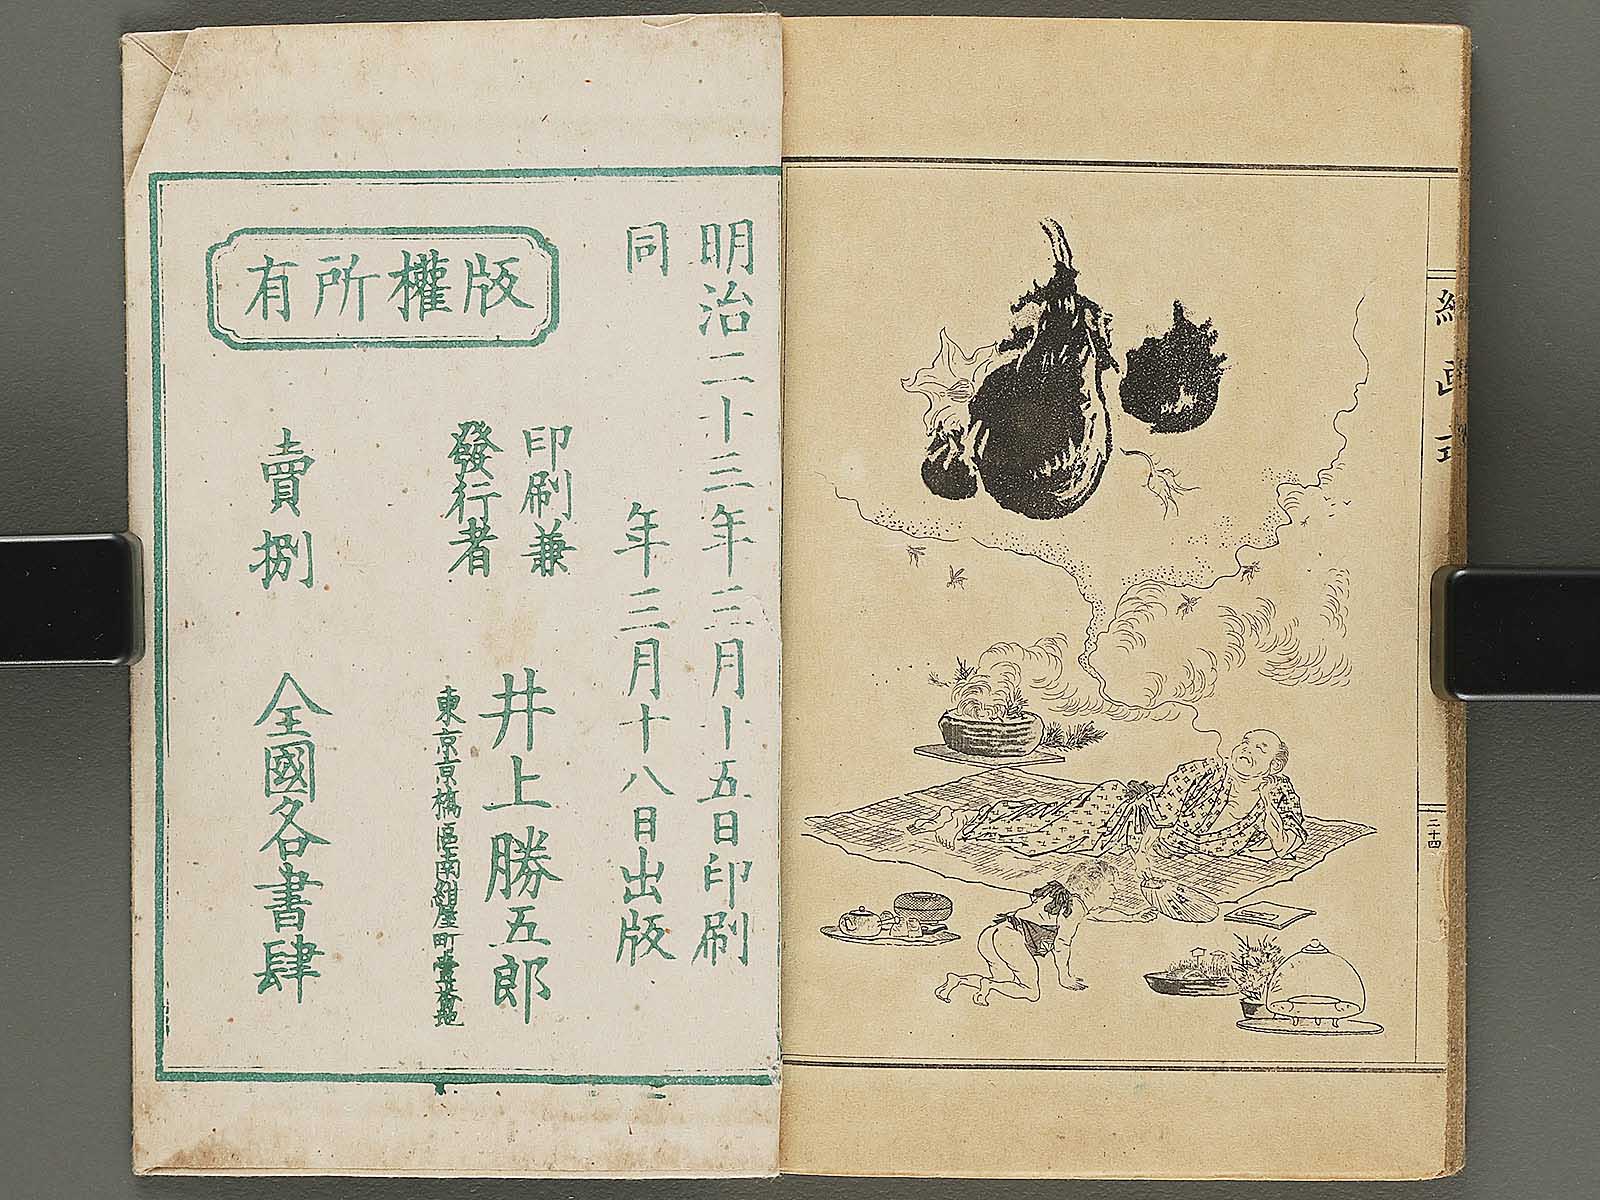 二十四
明治二十三年三月十五日印刷
同年三月十八日出版
版權所有
印刷兼
發行者
井上勝五郎
東京京橋區南紺屋町
賣捌 全國各書肆